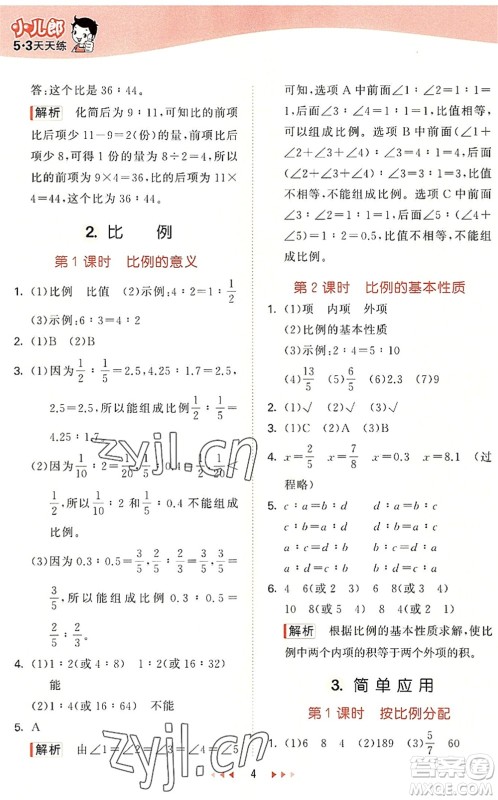 小儿郎
5·3天天练
答:这个比是36∶44。
解析 化简后为9∶11,可知比的前项
比后项少11-9=2(份)的量,前项比
后项少8,可得1份的量为8÷2=4,所
以比的前项为9×4=36,后项为11×
4=44,故这个比为36∶44。
2. 比 例
第1课时 比例的意义
1. (1)比例 比值 (2)示例:4∶2=1∶1/2
(3)示例:6∶3=4∶2
2. (1)B (2)B
3. (1)因为1/2∶1/5=2.5,4.25∶1.7=2.5,
2.5=2.5,所以能组成比例1/2∶1/5=
4.25∶1.7
(2)因为1/10∶2=1/20,1/5∶0.4=1/2,1/20≠
1/2,所以1/10∶2和1/5∶0.4不能组成
比例。
(3)因为0.3∶0.5=3/5,2/5∶2/3=3/5,3/5
=3/5,所以能组成比例0.3∶0.5=2/5
∶2/3。
4. (1)1∶2(或2∶4) 16∶32(或1∶2)
能
(2)1∶2(或2∶4) 16∶4 不能
5. A
解析 由∠1=∠2=∠3=∠4=∠5
可知,选项A中前面∠1∶∠2=1,
后面∠1∶∠3=1,比值相等,可
以组成比例。选项B中前面∠1∶
(∠1+∠2)=1∶2,后面(∠1+
∠2+∠3)∶∠4=3∶1,比值不相
等,不能组成比例。选项C中前面
(∠1+∠2+∠3+∠4)∶(∠1+
∠5)=4∶2,后面∠1∶∠2=1,比值
不相等,不能组成比例。
第2课时 比例的基本性质
1. (1)项 内项 外项
(2)比例的基本性质
(3)示例:2∶4=5∶10
(4)13/5 (5)6/5 (6)2 (7)9
2. (1)√ (2)√
3. (1)C (2)A (3)A
4. x=2/5 x=7/8 x=0.3 x=8.1 (过
程略)
5. c∶a=b∶d c∶b=a∶d
d∶a=b∶c d∶b=a∶c
a∶c=d∶b a∶d=c∶b
b∶c=d∶a b∶d=c∶a
6. 4 8(或2 4) 6 8(或4 3)
10 8(或5 4) 16 2(或8 1)
解析 根据比例的基本性质求解,使比
例中两个内项的积等于两个外项的积。
3. 简单应用
第1课时 按比例分配
1. (1)6 8 4 (2)189 (3)5/7 60
4
zyjl.cn
zyjl.cn
答案圈